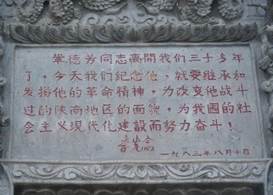 巩德芳同志离开我们三十多年
了，今天我们纪念他，就要继承和
发扬他的革命精神，为改变他战斗
过的陕南地区的面貌，为我国的社
会主义现代化建设而努力奋斗！
一九八三年八月十日